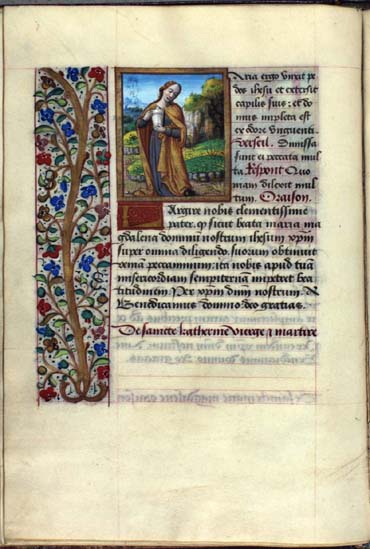 aria ergo unxit pe
des ihesu et extersit
capilis suis: et do
mus impleta est
ex odore unguenti.
Verseil. Dimissa
sunt ei peccata mul
ta. Respont Quo
niam dilexit mul
tum. Oraison.
Largire nobis clementissime
pater. q sicut beata maria ma
gdalena dominum nostrum ihesum xpm
super omnia diligendo. suorum obtinuit
veniam peccaminum: ita nobis apud tuã
misericordiam sempiternam impetret bea
titudinem. Per xpm dnm nostrum. R
Benedicamus domino deo gratias.
De saincte katherine vierge & martire